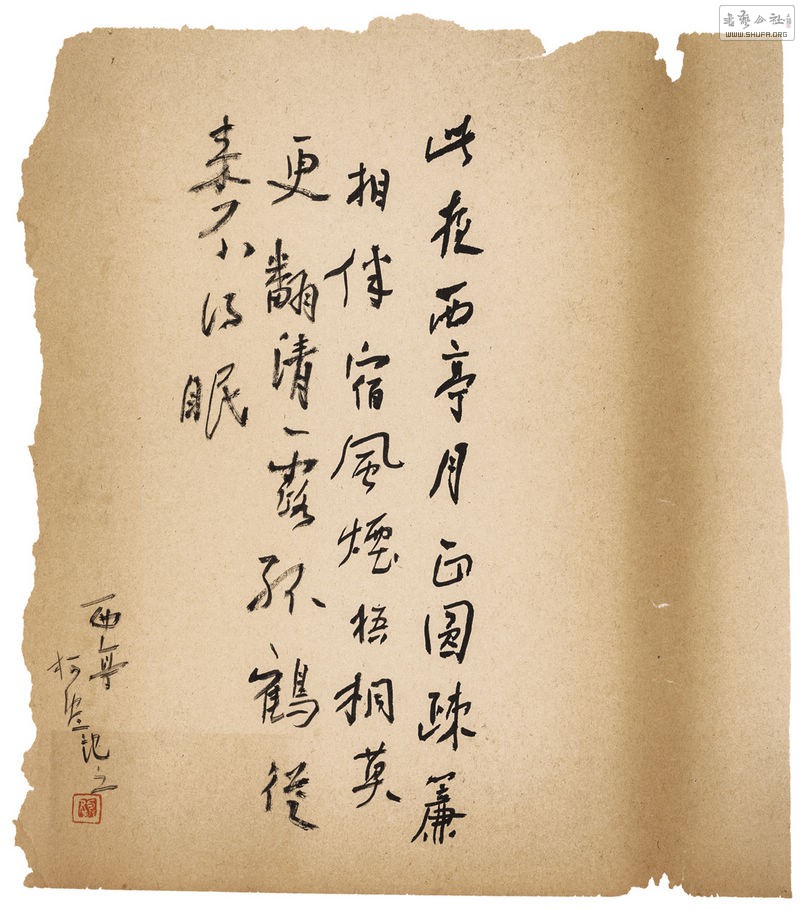 此夜西亭月正圓疎簾
相伴宿風煙梧桐莫
更翻清露孤鶴從
來不得眠
西亭
柯 記之
書藝公社
WWW.SHUFA.ORG